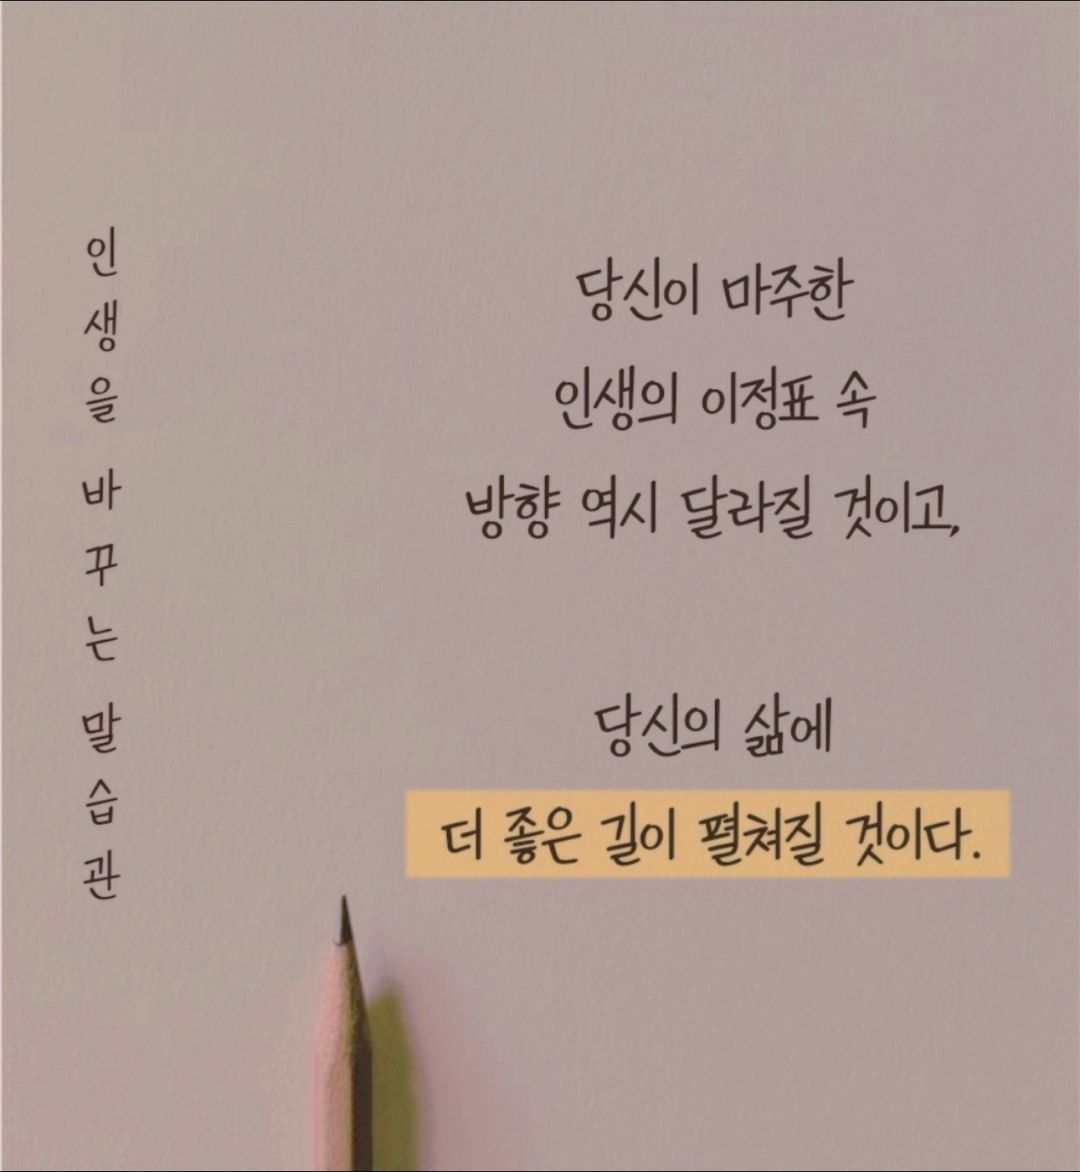 인생을 바꾸는 말습관
당신이 마주한
인생의 이정표 속
방향 역시 달라질 것이고,
당신의 삶에
더 좋은 길이 펼쳐질 것이다.